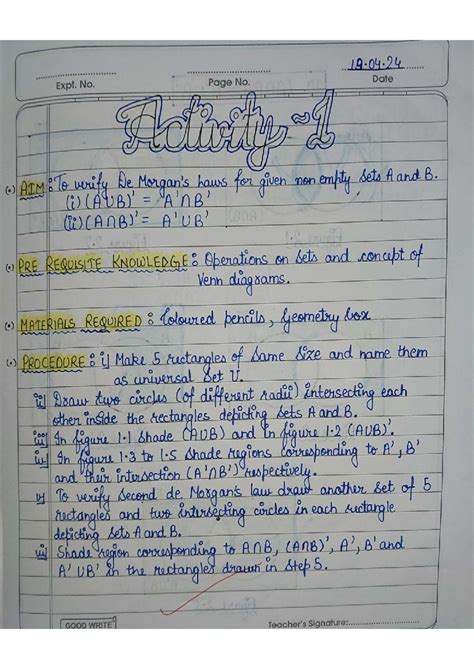 19.04.24
Expt. No. Page No. Date
Activity-1
(•) AIM: To verify De Morgan's Laws for given non empty Sets A and B.
(i) (A∪B)' = A'∩B'
(ii) (A∩B)' = A'∪B'
(•) PRE REQUISITE KNOWLEDGE: Operations on Sets and concept of
Venn diagrams.
(•) MATERIALS REQUIRED: Coloured pencils, Geometry box
(•) PROCEDURE: i] Make 5 rectangles of same size and name them
as universal Set U.
ii] Draw two circles (of different radii) intersecting each
other inside the rectangles depicting Sets A and B.
iii] In figure 1.1 shade (A∪B) and In figure 1.2 (A∪B)'.
iv] In figure 1.3 to 1.5 Shade regions corresponding to A', B'
and their intersection (A'∩B') respectively.
v] To verify Second de Morgan's law draw another set of 5
rectangles and two intersecting circles in each rectangle
depicting Sets A and B.
vi] Shade region corresponding to A∩B, (A∩B)', A', B' and
A' ∪B' in the rectangles drawn in Step 5.
GOOD WRITE Teacher's Signature: